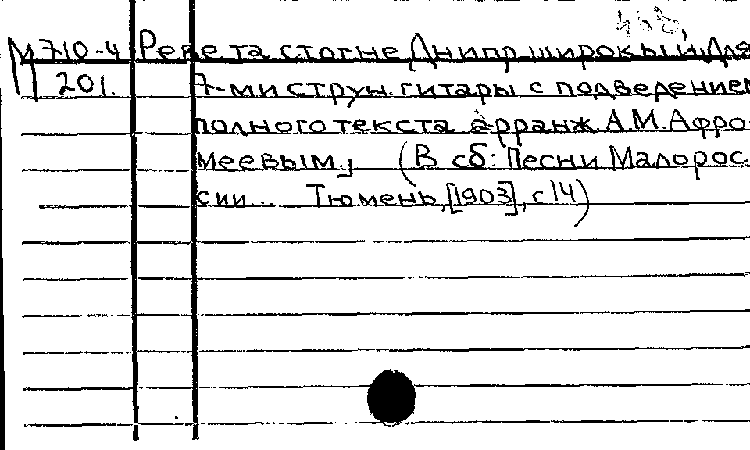 М 710-4 Реве та стогне Днипр широкый. Для
201. 7-ми струн. гитары с подведением
полного текста арранж А.М.Афро-
меевым, (В сб: Песни Малорос.
сии... Тюмень, [1903], с 14)